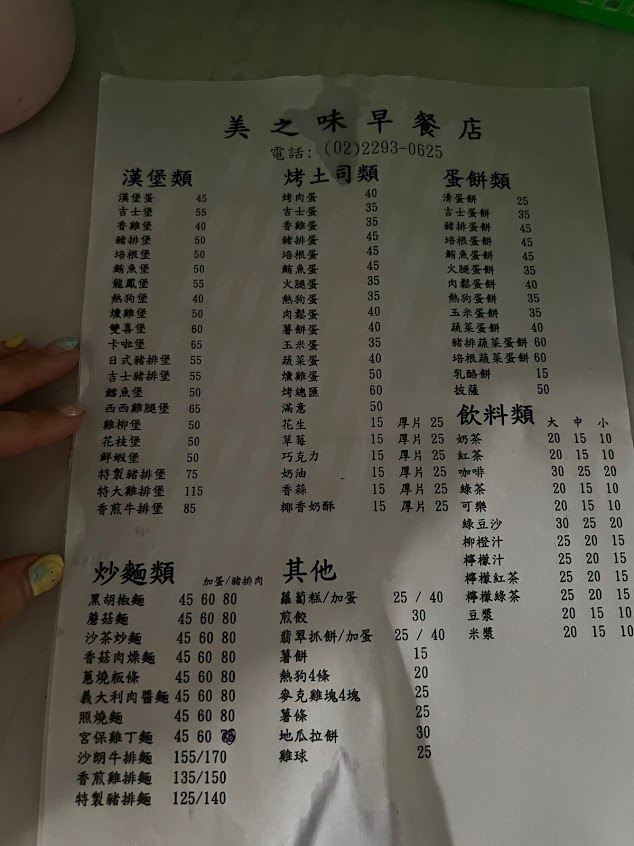 美之味早餐店
電話: (02)2293-0625
漢堡類
漢堡蛋 45
吉士堡 55
香雞堡 40
豬排堡 50
培根堡 50
鮪魚堡 50
龍鳳堡 55
熱狗堡 40
燻雞堡 50
雙喜堡 60
卡啦堡 65
日式豬排堡 55
吉士豬排堡 55
鱈魚堡 50
西西雞腿堡 65
雞柳堡 50
花枝堡 50
鮮蝦堡 50
特製豬排堡 75
特大雞排堡 115
香煎牛排堡 85
烤土司類
烤肉蛋 40
吉士蛋 35
香雞蛋 35
豬排蛋 45
培根蛋 45
鮪魚蛋 45
火腿蛋 35
熱狗蛋 35
肉鬆蛋 40
薯餅蛋 40
玉米蛋 35
蔬菜蛋 40
燻雞蛋 50
烤總匯 60
滿意 50
花生 15 厚片 25
草莓 15 厚片 25
巧克力 15 厚片 25
奶油 15 厚片 25
香蒜 15 厚片 25
椰香奶酥 15 厚片 25
蛋餅類
清蛋餅 25
吉士蛋餅 35
豬排蛋餅 45
培根蛋餅 45
鮪魚蛋餅 45
火腿蛋餅 35
肉鬆蛋餅 40
熱狗蛋餅 35
玉米蛋餅 35
蔬菜蛋餅 40
豬排蔬菜蛋餅 60
培根蔬菜蛋餅 60
乳酪餅 15
披薩 50
飲料類 大 中 小
奶茶 20 15 10
紅茶 20 15 10
咖啡 30 25 20
綠茶 20 15 10
可樂 20 15 10
綠豆沙 30 25 20
柳橙汁 25 20 15
檸檬汁 25 20 15
檸檬紅茶 25 20 15
檸檬綠茶 25 20 15
豆漿 20 15 10
米漿 20 15 10
炒麵類 加蛋/豬排肉
黑胡椒麵 45 60 80
蘑菇麵 45 60 80
沙茶炒麵 45 60 80
香菇肉燥麵 45 60 80
蔥燒粄條 45 60 80
義大利肉醬麵 45 60 80
照燒麵 45 60 80
宮保雞丁麵 45 60
沙朗牛排麵 155/170
香煎雞排麵 135/150
特製豬排麵 125/140
其他
蘿蔔糕/加蛋 25 / 40
煎餃 30
翡翠抓餅/加蛋 25 / 40
薯餅 15
熱狗4條 20
麥克雞塊4塊 25
薯條 25
地瓜拉餅 30
雞球 25